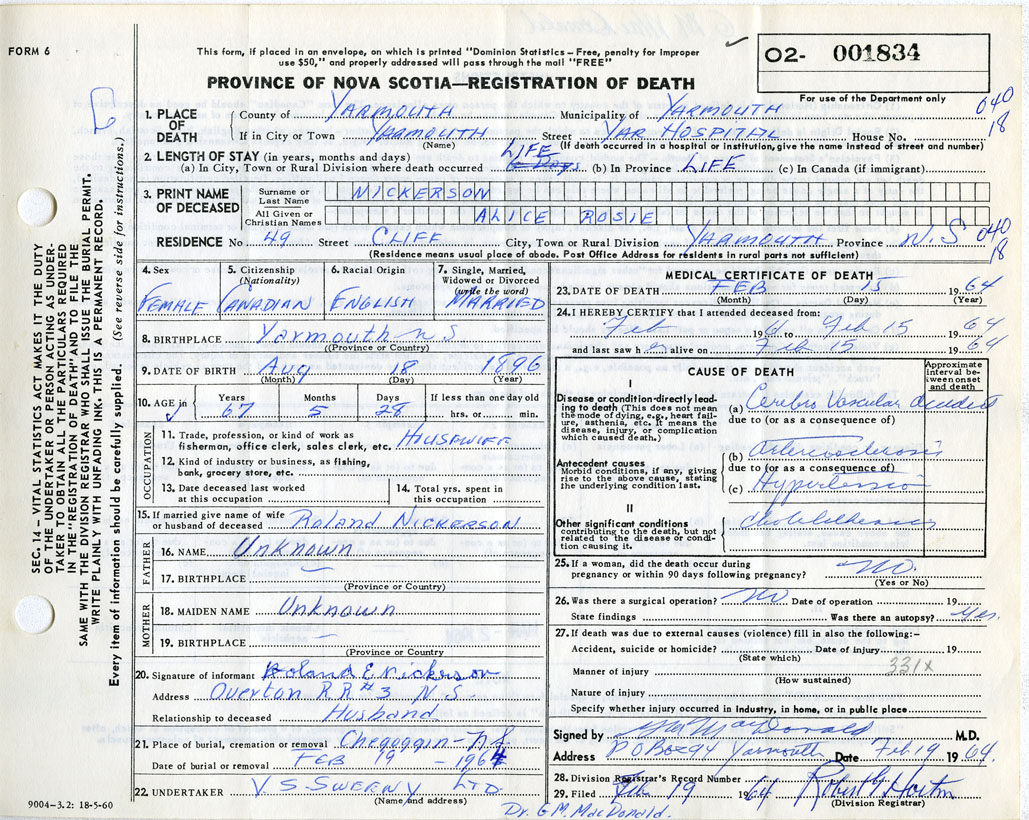 FORM 6
This form, if placed in an envelope, on which is printed "Dominion Statistics – Free, penalty for improper
use $50," and properly addressed will pass through the mail "FREE"
PROVINCE OF NOVA SCOTIA—REGISTRATION OF DEATH
02- 001834
For use of the Department only
040
18
SEC. 14 – VITAL STATISTICS ACT MAKES IT THE DUTY
OF THE UNDERTAKER OR PERSON ACTING AS UNDER-
TAKER TO OBTAIN ALL THE PARTICULARS REQUIRED
IN THE "REGISTRATION OF DEATH" AND TO FILE THE
SAME WITH THE DIVISION REGISTRAR WHO SHALL ISSUE THE BURIAL PERMIT.
WRITE PLAINLY WITH UNFADING INK. THIS IS A PERMANENT RECORD.
Every item of information should be carefully supplied. (See reverse side for instructions.)
1. PLACE OF DEATH
County of YARMOUTH Municipality of YARMOUTH
If in City or Town YARMOUTH Street YAR HOSPITAL House No.
(Name) (If death occurred in a hospital or institution, give the name instead of street and number)
2. LENGTH OF STAY (in years, months and days)
(a) In City, Town or Rural Division where death occurred LIFE 6 Days (b) In Province LIFE (c) In Canada (if immigrant)
3. PRINT NAME OF DECEASED
Surname or Last Name NICKERSON
All Given or Christian Names ALICE ROSIE
RESIDENCE No 49 Street CLIFF City, Town or Rural Division YARMOUTH Province N.S 040
18
(Residence means usual place of abode. Post Office Address for residents in rural parts not sufficient)
4. Sex
FEMALE
5. Citizenship (Nationality)
CANADIAN
6. Racial Origin
ENGLISH
7. Single, Married, Widowed or Divorced (write the word)
MARRIED
8. BIRTHPLACE Yarmouth N S
(Province or Country)
9. DATE OF BIRTH Aug 18 1896
(Month) (Day) (Year)
10. AGE in Years Months Days If less than one day old
67 5 28 hrs. or min.
OCCUPATION
11. Trade, profession, or kind of work as
fisherman, office clerk, sales clerk, etc. HOUSEWIFE
12. Kind of industry or business, as fishing,
bank, grocery store, etc.
13. Date deceased last worked
at this occupation
14. Total yrs. spent in
this occupation
15. If married give name of wife
or husband of deceased Roland Nickerson
FATHER
16. NAME Unknown
17. BIRTHPLACE —
(Province or Country)
MOTHER
18. MAIDEN NAME Unknown
19. BIRTHPLACE —
(Province or Country)
20. Signature of informant Roland E Nickerson
Address Overton RR #3 N.S.
Relationship to deceased Husband
21. Place of burial, cremation or removal Chegoggin - N.S
Date of burial or removal FEB 19 - 1964
22. UNDERTAKER V.S. SWEENY LTD.
(Name and address)
9004-3.2: 18-5-60
MEDICAL CERTIFICATE OF DEATH
23. DATE OF DEATH FEB 15 1964
(Month) (Day) (Year)
24. I HEREBY CERTIFY that I attended deceased from:
Feb 1961 to Feb 15 1964
and last saw her alive on Feb 15 1964
CAUSE OF DEATH
Approximate interval between onset and death
I
Disease or condition directly lead-
ing to death (This does not mean
the mode of dying, e.g., heart fail-
ure, asthenia, etc. It means the
disease, injury, or complication
which caused death.)
(a) Cerebro Vascular Accident
due to (or as a consequence of)
Antecedent causes
Morbid conditions, if any, giving
rise to the above cause, stating
the underlying condition last.
(b) Arteriosclerosis
due to (or as a consequence of)
(c) Hypertension
II
Other significant conditions
contributing to the death, but not
related to the disease or condi-
tion causing it.
Cholelithiasis
25. If a woman, did the death occur during
pregnancy or within 90 days following pregnancy? No.
(Yes or No)
26. Was there a surgical operation? No Date of operation 19
State findings Was there an autopsy? Yes.
27. If death was due to external causes (violence) fill in also the following:–
Accident, suicide or homicide? Date of injury 19
(State which)
331x
Manner of injury
(How sustained)
Nature of injury
Specify whether injury occurred in industry, in home, or in public place
Signed by GM MacDonald M.D.
Address P O Box 94 Yarmouth Date Feb 19 1964.
28. Division Registrar's Record Number
29. Filed Feb 19 1964 Robert G Horton
(Division Registrar)
Dr. G M. MacDonald.